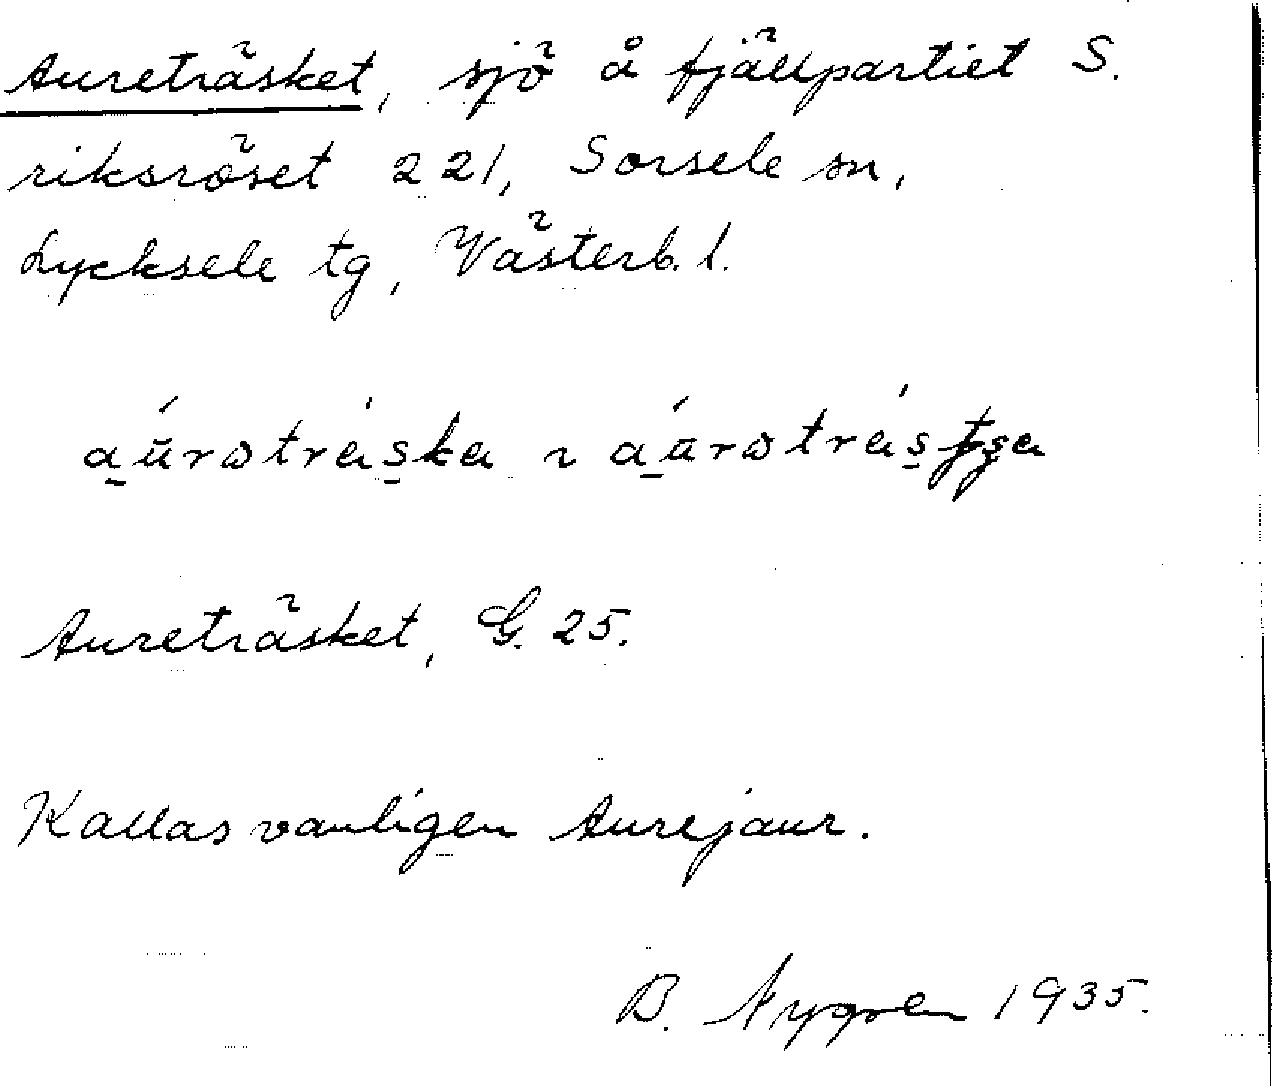 Aureträsket, sjö å fjällpartiet S.
riksröset 221, Sorsele sn,
Lycksele tg, Västerb. l.
Aureträsket, G. 25.
Kallas vanligen Aurejaur.
B. Nygren 1935.